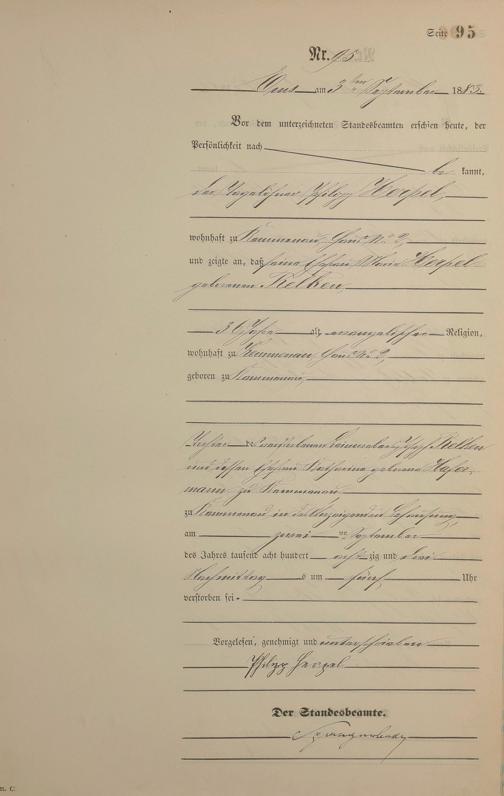 Seite 95
Nr. 95
Ems am 3ten September 1883.
Vor dem unterzeichneten Standesbeamten erschien heute, der
Persönlichkeit nach
be kannt,
der Tagelöhner Philipp Herpel,
wohnhaft zu Kemmenau, Haus No 2,
und zeigte an, daß seine Ehefrau Maria Herpel
geborenen
36 Jahre alt, evangelischer Religion,
wohnhaft zu Kemmenau, Haus No 2,
geboren zu Kemmenau,
Tochter des verstorbenen
und dessen Ehefrau Katharina geborene Hafer-
mann zu Kemmenau
zu Kemmenau in der
am zwei ten September
des Jahres tausend acht hundert acht zig und drei
Nachmittag s um fünf Uhr
verstorben sei
Vorgelesen, genehmigt und unterschrieben
Philipp Herpel
Der Standesbeamte.